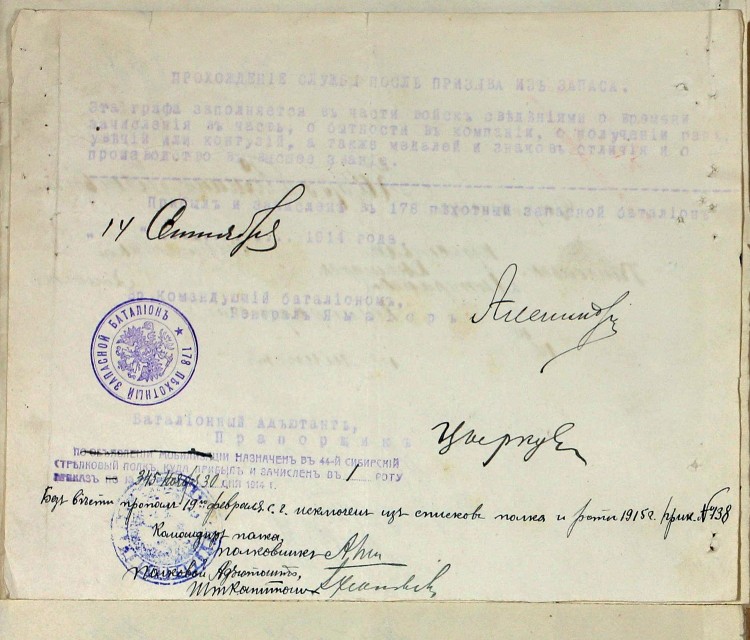 ПРОХОЖДЕНІЕ СЛУЖБЫ ПОСЛЕ ПРИЗЫВА ИЗЪ ЗАПАСА.
Эта графа заполняется въ части войскъ свѣдѣніями о времени
зачисленія въ часть, о бытности въ компаніи, о полученіи
или контузій, а также медалей и знаковъ отличія и о
производствѣ въ высшее званіе.
Прибылъ и зачисленъ въ 178 пѣхотный запасной баталіонъ
14 Сентября 1914 года.
Командующій баталіономъ,
Генералъ
178 ПѢХОТНЫЙ ЗАПАСНОЙ БАТАЛІОНЪ
Баталіонный Адъютантъ,
Прапорщикъ
НАЗНАЧЕНЪ ВЪ 44-Й СИБИРСКІЙ
СТРѢЛКОВЫЙ ПОЛКЪ, КУДА ПРИБЫЛЪ И ЗАЧИСЛЕНЪ ВЪ 1 РОТУ
ПРИКАЗЪ 345 30 1914 Г.
Безъ вѣсти пропалъ 19го февраля с. г. исключенъ изъ списковъ полка и роты 1915 г. прик. № 738
Командиръ полка,
полковникъ
Полковой Адъютантъ,